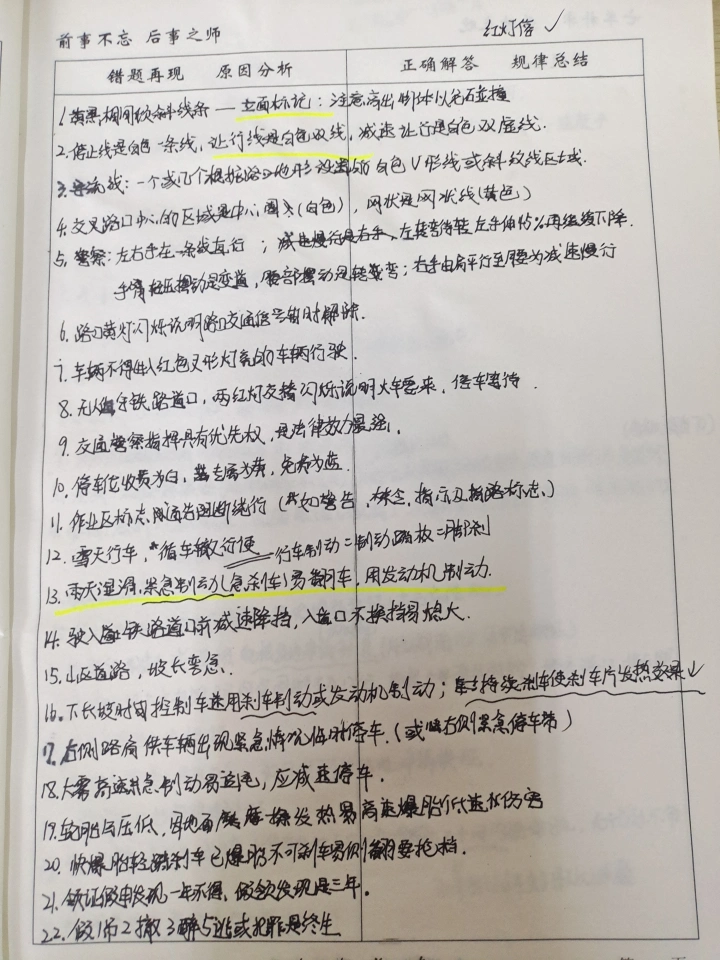 前事不忘 后事之师
红灯停 ✓
错题再现 原因分析
正确解答 规律总结
1.黄黑相间倾斜线条 — 立面标记：注意高出物体以免碰撞
2.停止线是白色一条线，让行线是白色双线，减速让行是白色双虚线.
3.导流线：一个或几个根据路口地形设置的白色V形线或斜纹线区域.
4.交叉路口中心的区域是中心圈（白色），网状是网状线(黄色)
5.警察：左右手在一条线直行；减速慢行是右手、左转弯待转左手伸45%再缓缓下降.
手臂摆动是变道，腰部摆动是转弯；右手由肩平行至腰为减速慢行
6.路口黄灯闪烁说明路口交通信号暂时解除.
7.车辆不得进入红色叉形灯亮的车辆行驶.
8.无人看守铁路道口，两红灯交替闪烁说明火车要来，停车等待.
9.交通警察指挥具有优先权，是法律效力最强.
10.停车位收费为白，专属为黄，免费为蓝.
11.作业区标志用通告阻断绕行（如警告、禁令、指示及指路标志.）
12.雪天行车，循车辙行使 行车制动＝制动踏板＝脚刹
13.雨天湿滑，紧急制动(急刹车)易翻车，用发动机制动.
14.驶入铁路道口前减速降挡，入道口不换挡易熄火.
15.山区道路，坡长弯急.
16.下长坡时间控制车速用刹车制动或发动机制动；持续刹车使刹车片发热效果↓
17.右侧路肩供车辆出现紧急情况临时停车.（或右侧紧急停车带）
18.大雾高速紧急制动易追尾，应减速停车.
19.轮胎气压低，因地面摩擦发热易高速爆胎低速不伤害
20.快爆胎轻踏刹车已爆胎不可刹车易侧翻要抢档.
21.领证假申发现一年不得，假领发现是三年.
22.假1吊2撤3醉5逃或犯罪是终生